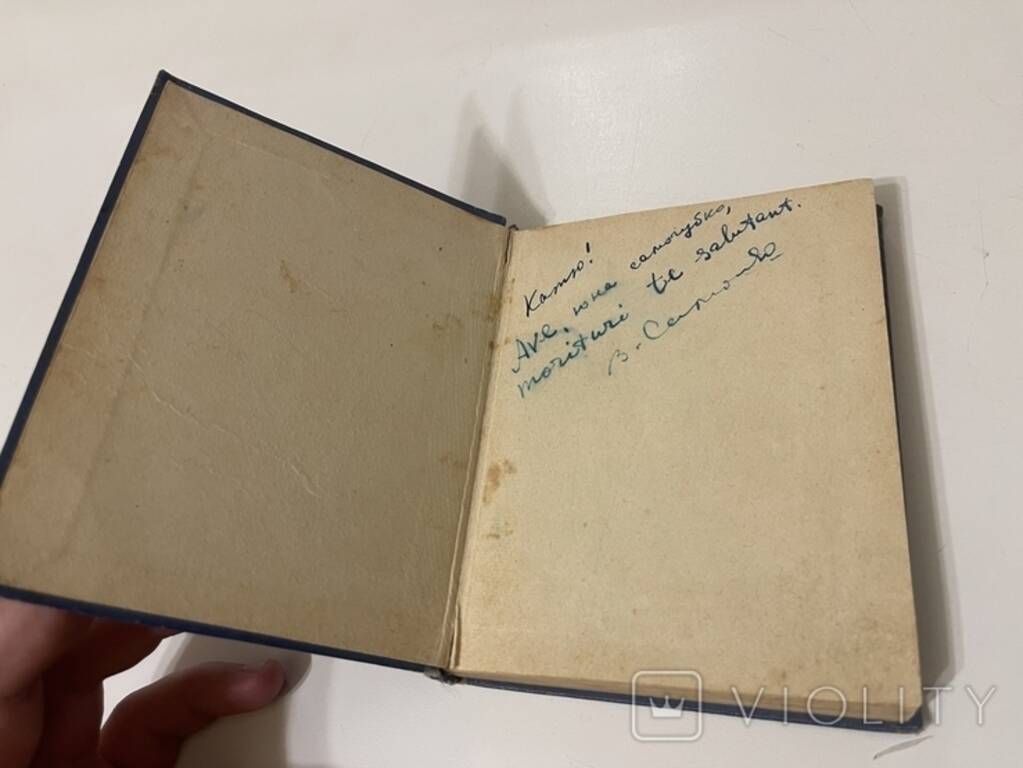 Катю!
Ave, юна самогубко,
morituri te salutant.
В.
VIOLITY